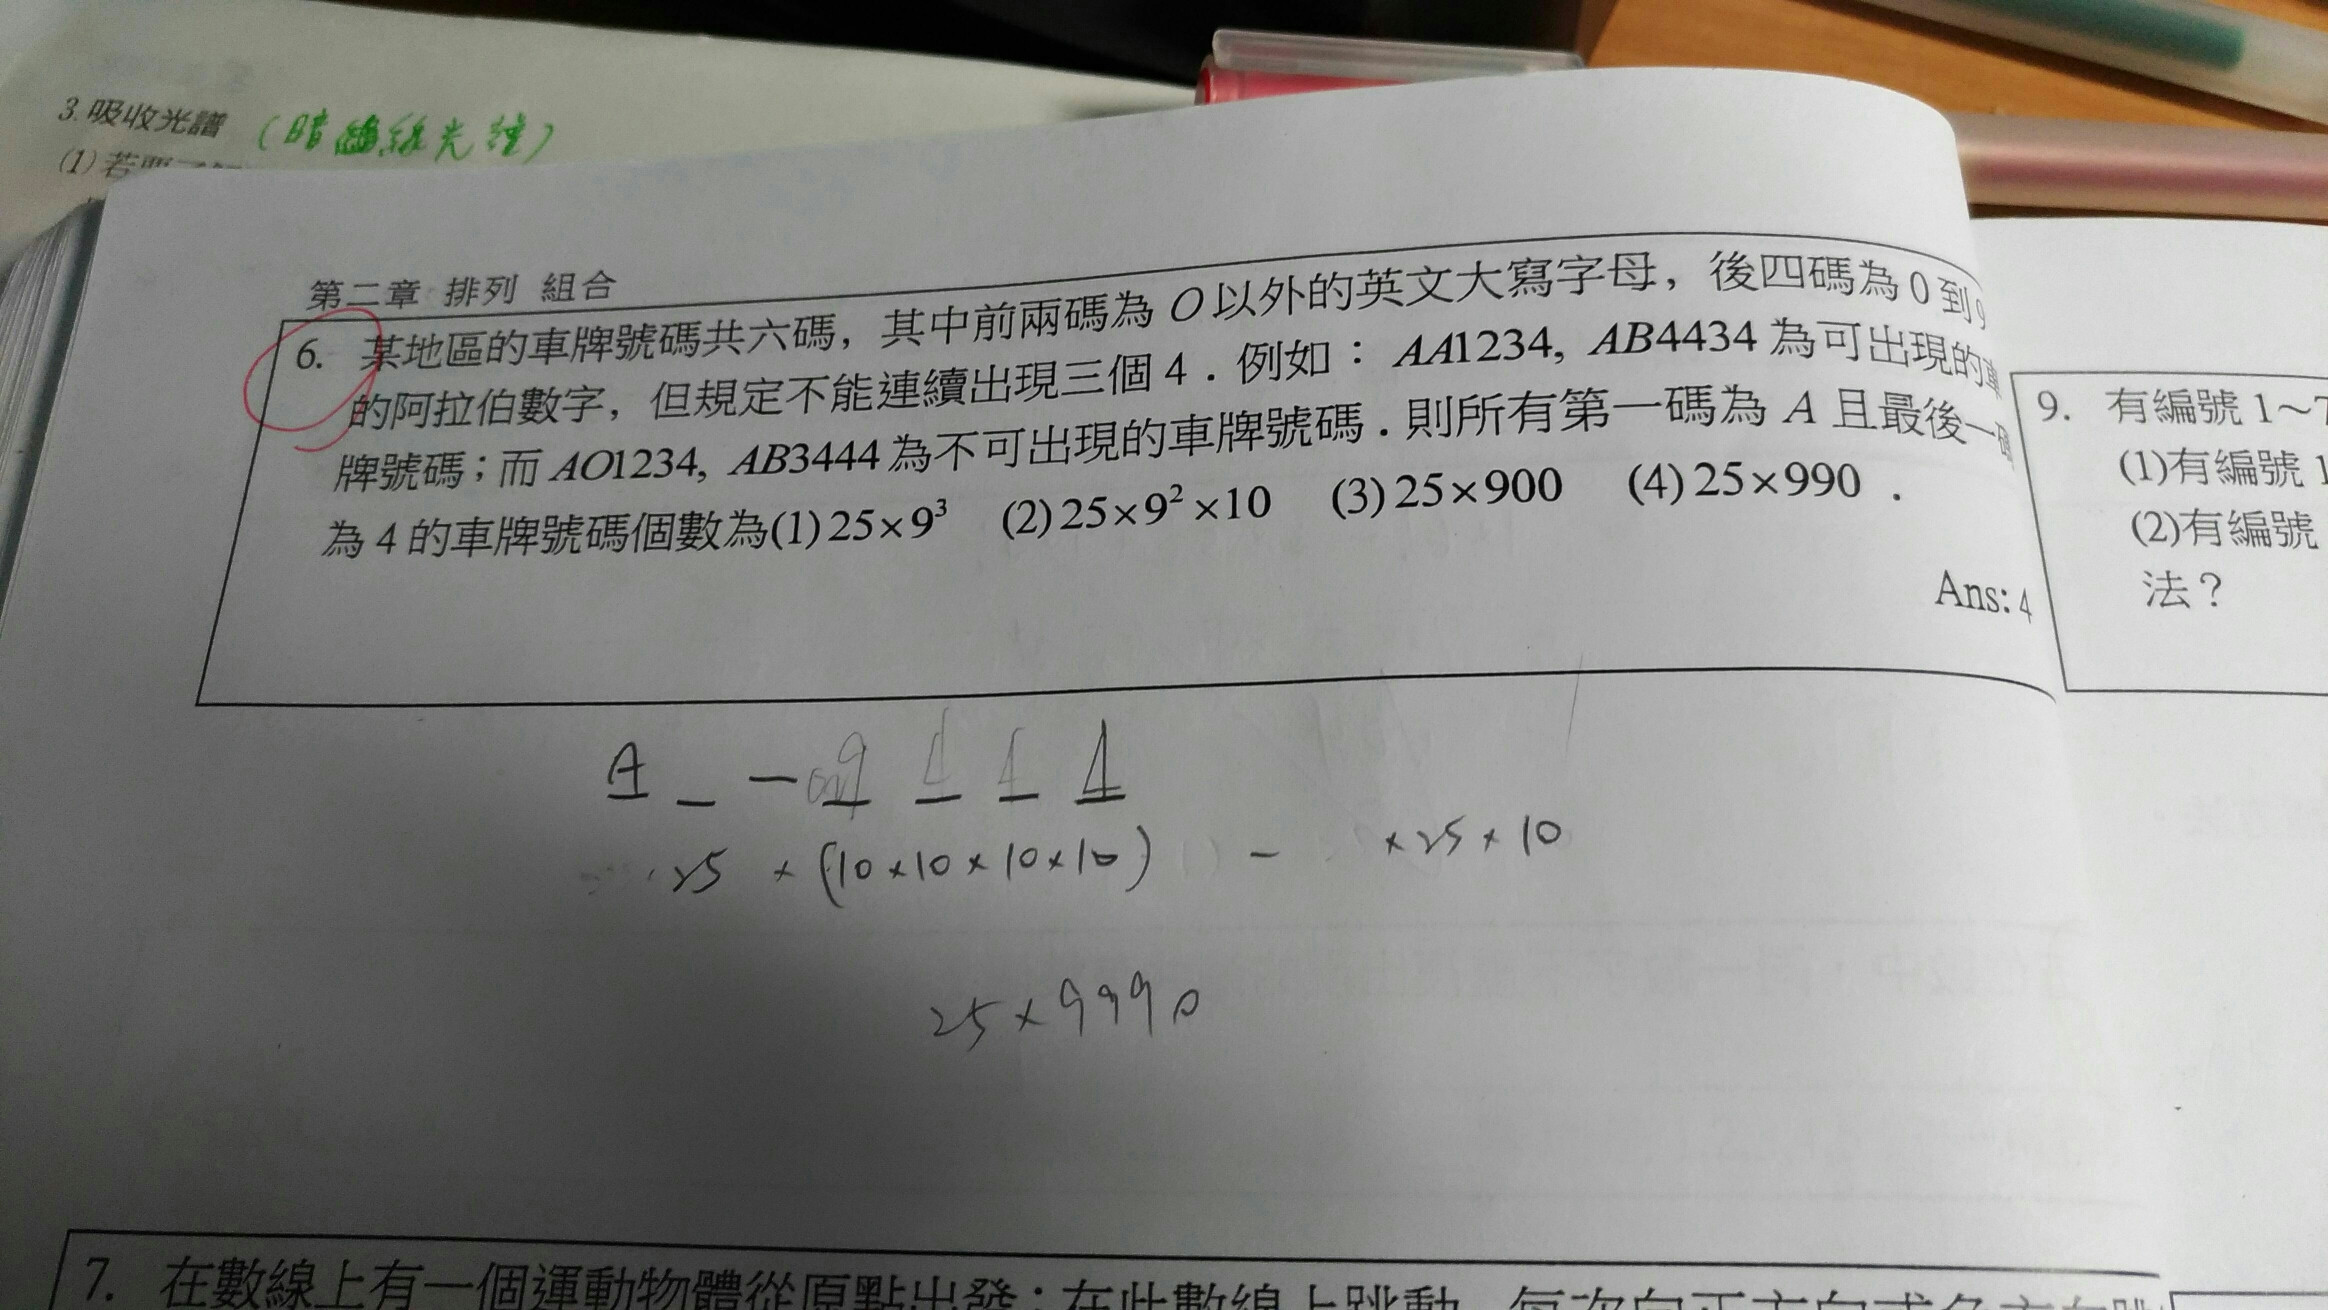 3.吸收光譜 (暗線光譜)
(1)若要
第二章 排列 組合
6. 某地區的車牌號碼共六碼，其中前兩碼為 O 以外的英文大寫字母，後四碼為 0 到 9
的阿拉伯數字，但規定不能連續出現三個 4．例如：AA1234, AB4434 為可出現的車
牌號碼；而 AO1234, AB3444 為不可出現的車牌號碼．則所有第一碼為 A 且最後一碼
為 4 的車牌號碼個數為(1)25×9³ (2)25×9²×10 (3)25×900 (4)25×990．
Ans: 4
A _ - 9 4 4 4
25 × (10×10×10×10) - ×25×10
25×9990
9. 有編號 1~7
(1)有編號 1
(2)有編號
法？
7. 在數線上有一個運動物體從原點出發；在此數線上跳動，每次向正方向或負方向跳